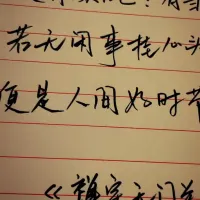 若无闲事挂心头
便是人间好时节
《禅宗无门关